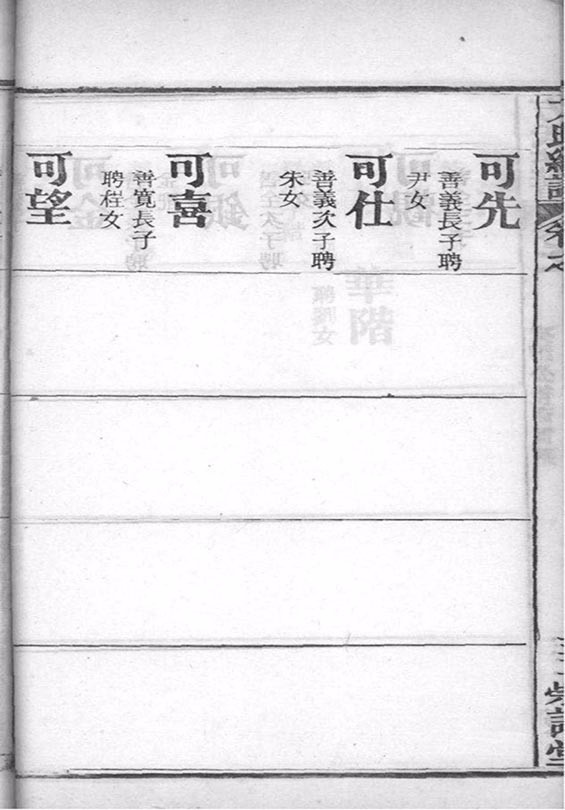 可先
善義長子聘
尹女
可仕
善義次子聘
朱女
可喜
善寬長子
聘桂女
可望